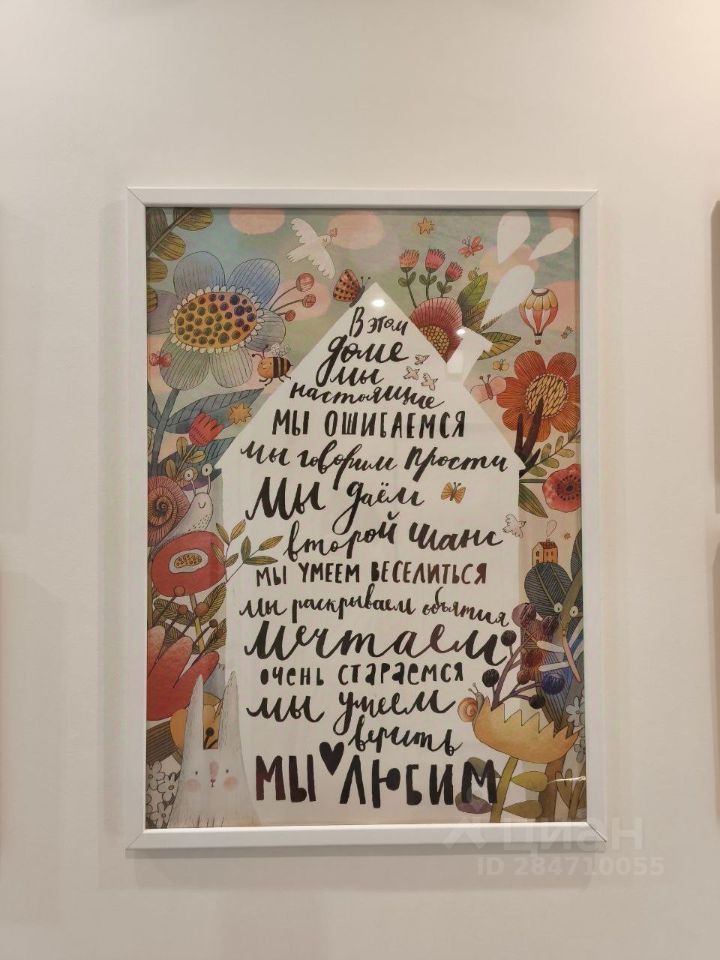 В этом
доме
мы
настоящие
МЫ ОШИБАЕМСЯ
мы говорим прости
Мы даём
второй шанс
МЫ УМЕЕМ ВЕСЕЛИТЬСЯ
мы раскрываем объятия
Мечтаем
ОЧЕНЬ СТАРАЕМСЯ
мы умеем
верить
МЫ ♥ ЛЮБИМ
циан
ID 284710055